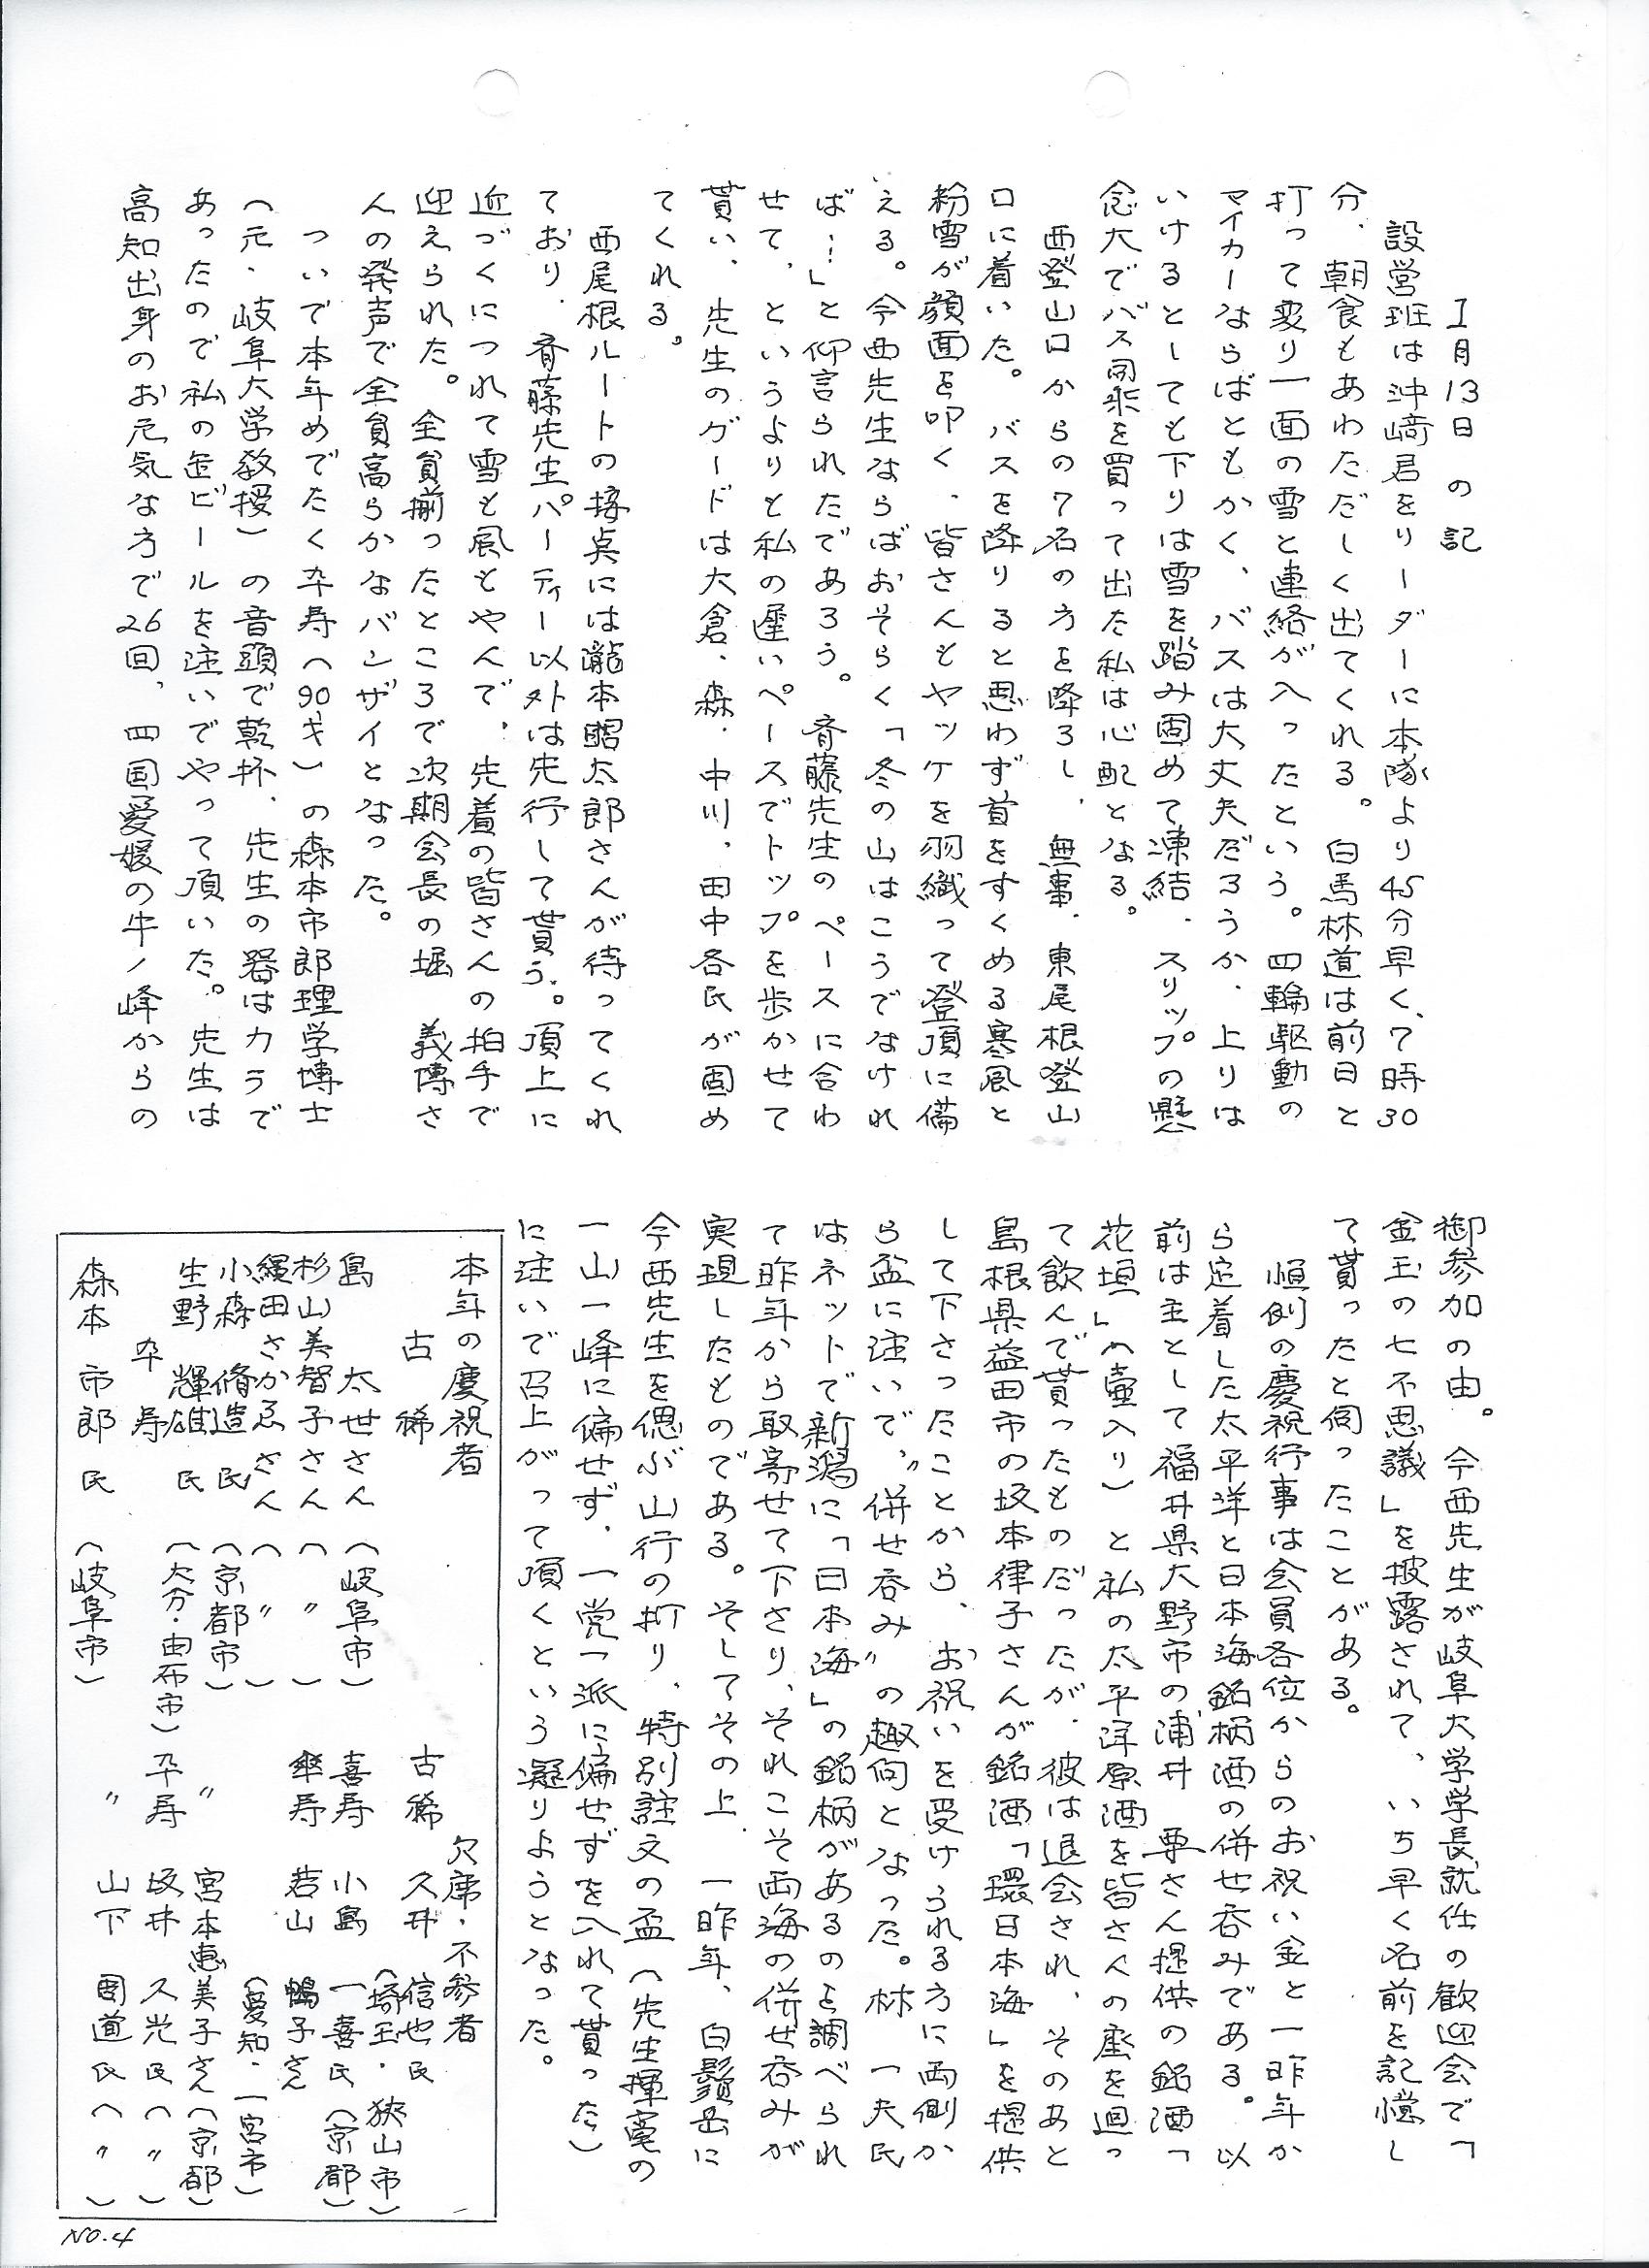 1月13日の記
設営班は沖﨑君をリーダーに本隊より45分早く、7時30
分、朝食もあわただしく出てくれる。白馬林道は前日と
打って変り一面の雪と連絡が入ったという。四輪駆動の
マイカーならばともかく、バスは大丈夫だろうか、上りは
いけるとしても下りは雪を踏み固めて凍結、スリップの懸
念大でバス同乗を買って出た私は心配となる。
西登山口からの7名の方を降ろし、無事、東尾根登山
口に着いた。バスを降りると思わず首をすくめる寒風と
粉雪が顔面を叩く、皆さんもヤッケを羽織って登頂に備
える。今西先生ならばおそらく「冬の山はこうでなけれ
ば…」と仰言られたであろう。斉藤先生のペースに合わ
せて、というよりも私の遅いペースでトップを歩かせて
貰い、先生のガードは大倉、森、中川、田中各氏が固め
てくれる。
西尾根ルートの接点には瀧本昭太郎さんが待ってくれ
ており、斉藤先生パーティー以外は先行して貰う。頂上に
近づくにつれて雪も風もやんで、先着の皆さんの拍手で
迎えられた。全員揃ったところで次期会長の堀 義博さ
人の発声で全員高らかなバンザイとなった。
ついで本年めでたく卆寿（90才）の森本市郎理学博士
（元・岐阜大学教授）の音頭で乾杯、先生の器はカラで
あったので私の缶ビールを注いでやって頂いた。先生は
高知出身のお元気な方で26回、四国愛媛の牛ノ峰からの
御参加の由。今西先生が岐阜大学学長就任の歓迎会で「
金玉の七不思議」を披露されて、いち早く名前を記憶し
て貰ったと伺ったことがある。
恒例の慶祝行事は会員各位からのお祝い金と一昨年か
ら定着した太平洋と日本海銘柄酒の併せ呑みである。以
前は主として福井県大野市の浦井 要さん提供の銘酒「
花垣」（壷入り）と私の太平洋原酒を皆さんの座を廻っ
て飲んで貰ったものだったが、彼は退会され、そのあと
島根県益田市の坂本律子さんが銘酒「環日本海」を提供
して下さったことから、お祝いを受けられる方に両側か
ら盃に注いで、〝併せ呑み〟の趣向となった。林 一夫氏
はネットで新潟に「日本海」の銘柄があるのを調べられ
て昨年から取寄せて下さり、それこそ両海の併せ呑みが
実現したものである。そしてその上、一昨年、白鬚岳に
今西先生を偲ぶ山行の折り、特別註文の盃（先生揮毫の
一山一峰に偏せず、一党一派に偏せずを入れて貰った）
に注いで召上がって頂くという凝りようとなった。
本年の慶祝者
古稀
島 太世さん（岐阜市）
杉山美智子さん（〃）
縄田さかゑさん（〃）
小森 脩造氏（京都市）
生野 輝雄氏（大分・由布市）
卆寿
森本 市郎氏（岐阜市）
欠席・不参者
古稀 久井 信也氏（埼玉・狭山市）
喜寿 小島 一喜氏（京都）
傘寿 若山 鴨子さん（愛知・一宮市）
〃 宮本恵美子さん（京都）
卆寿 坂井 久光氏（〃）
〃 山下 圉道氏（〃）
NO.4